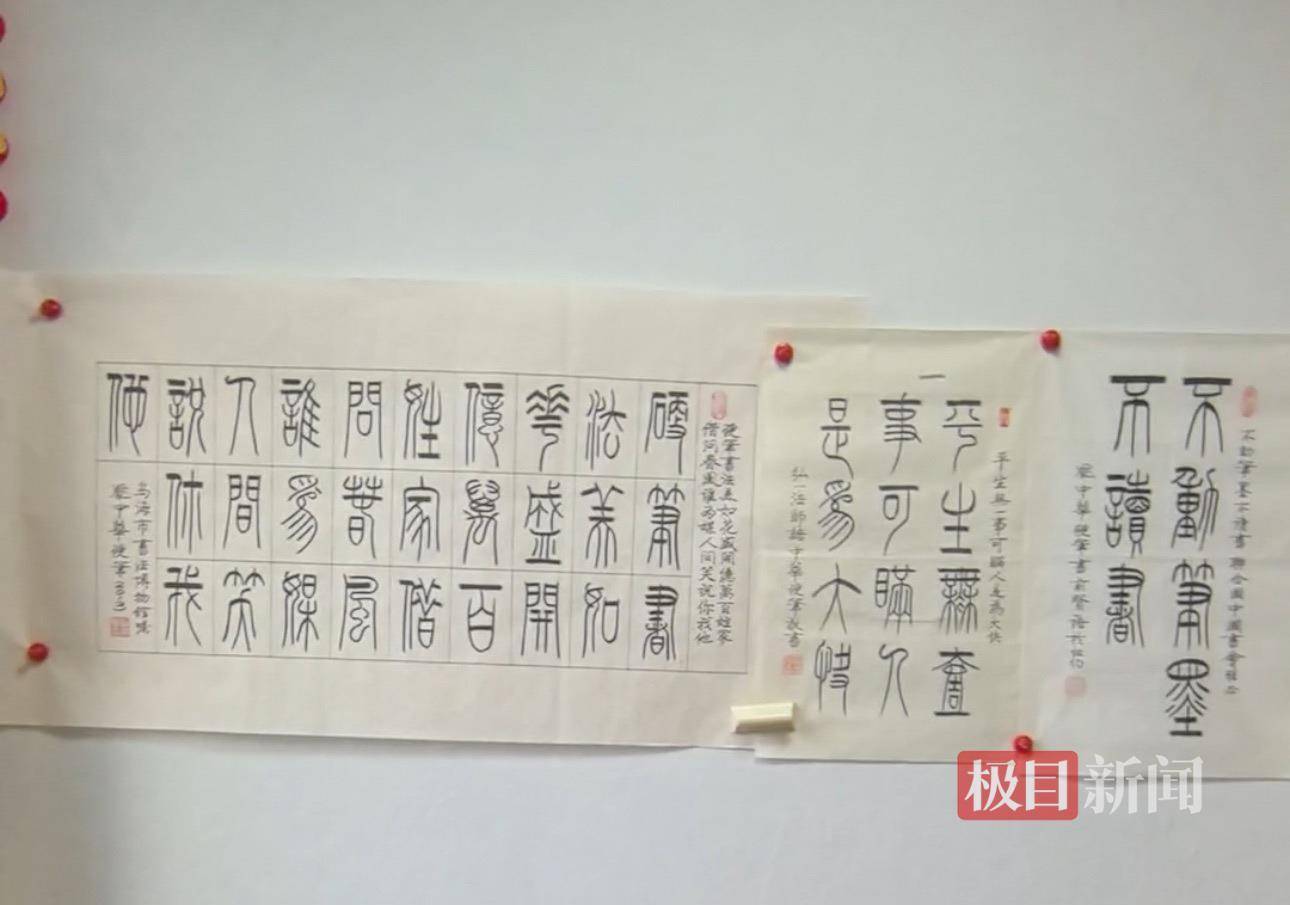 不動筆墨不讀書 聯合國中國書會
不動筆墨
不讀書
中華硬筆書前賢語
平生無一事可瞞人是為大快
平生無壹
事可瞞人
是為大快
弘一法師語中華硬筆
硬筆書法美如花盛開億萬百姓家
借問春風誰為媒人間笑說你我他
硬筆書
法美如
花盛開
億萬百
姓家借
問春風
誰為媒
人間笑
說你我
他
烏海市書法博物館
中華硬筆
极目新闻